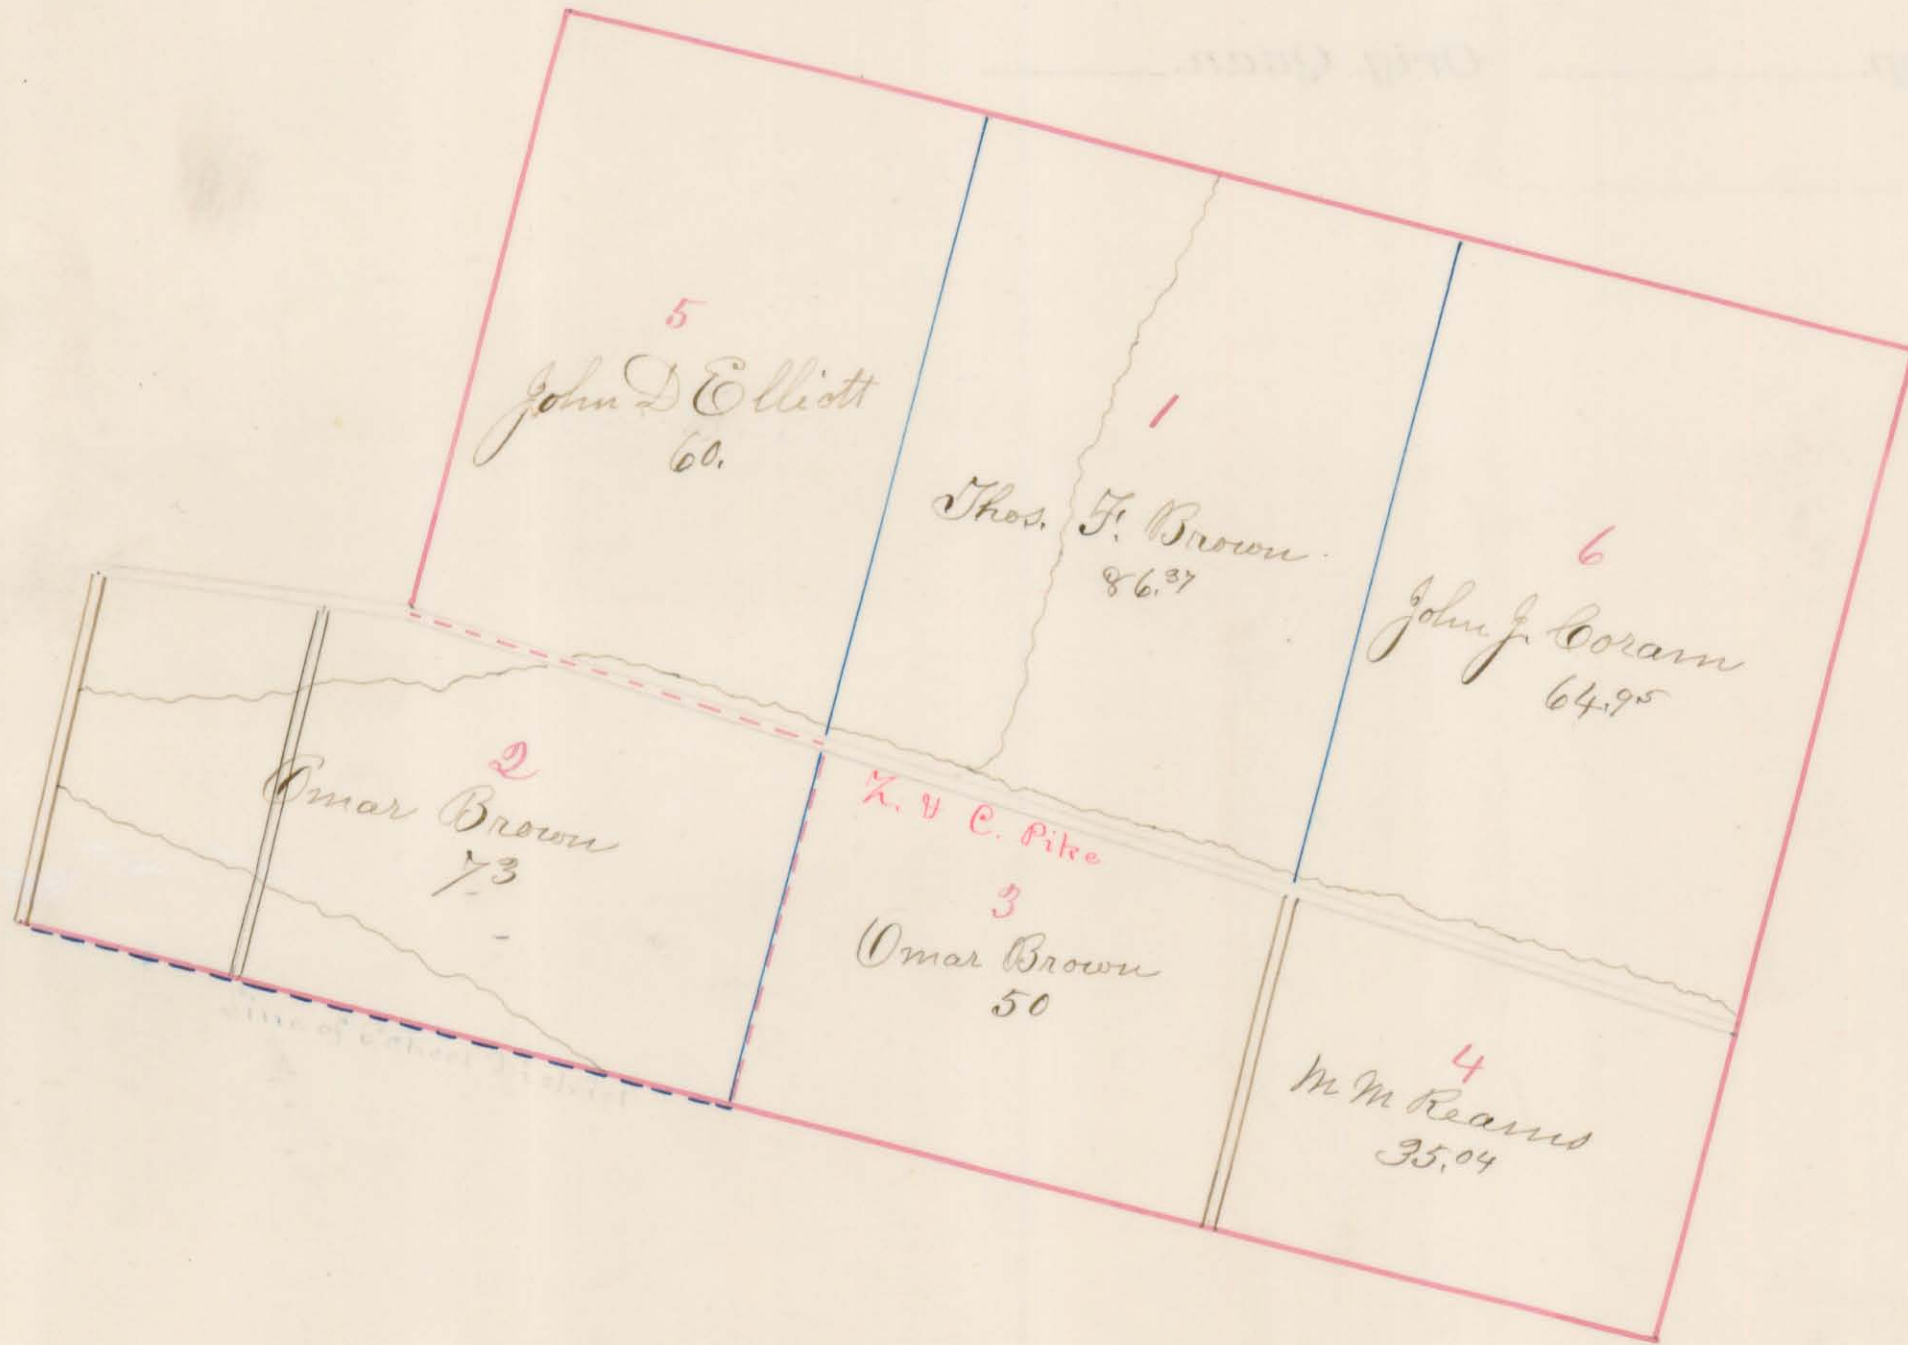 5
John D Elliott
60.
1
Thos. F. Brown
86.37
6
John J. Coram
64.95
2
Omar Brown
73
Z. & C. Pike
3
Omar Brown
50
4
M M Reams
35.04
Orig. Quan.